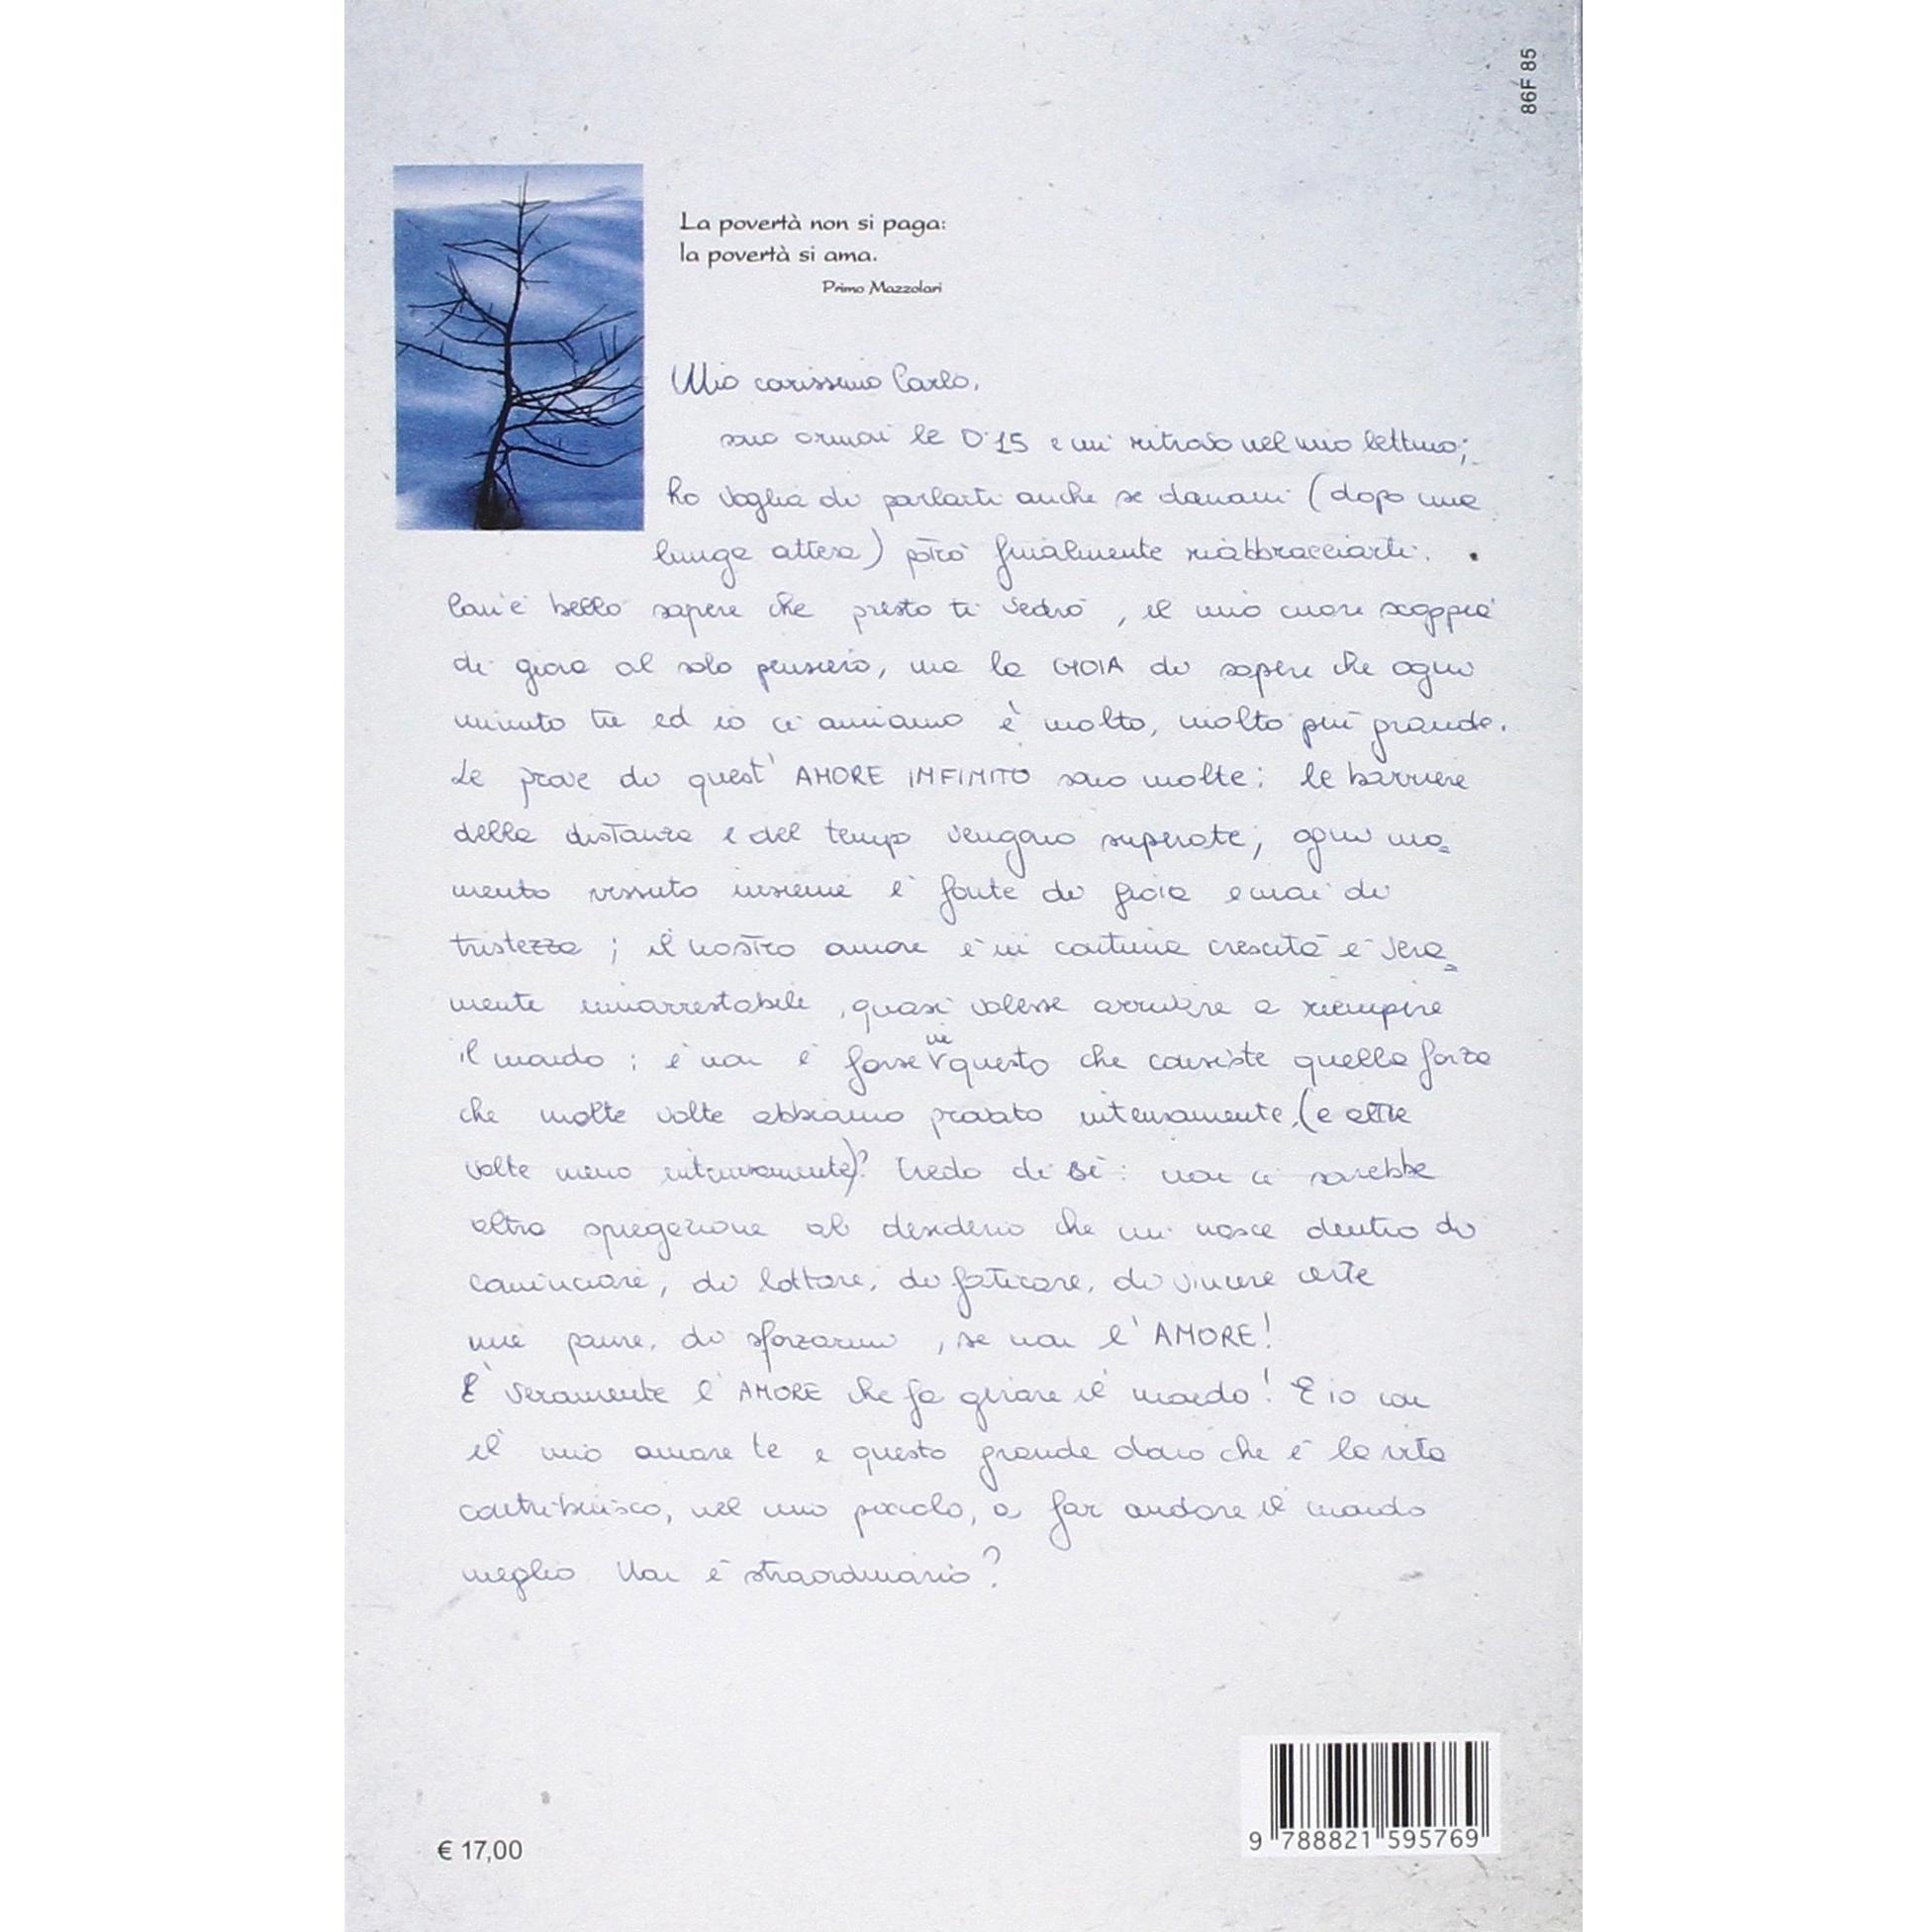 86F 85
La povertà non si paga:
la povertà si ama.
Primo Mazzolari
Mio carissimo Carlo,
sono ormai le 0.15 e mi ritrovo nel mio lettino;
ho voglia di parlarti anche se domani (dopo una
lunga attesa) potrò finalmente riabbracciarti.
Com'è bello sapere che presto ti vedrò, il mio cuore scoppia
di gioia al solo pensiero, ma la GIOIA di sapere che ogni
minuto tu ed io ci amiamo è molto, molto più grande.
Le prove di quest'AMORE INFINITO sono molte: le barriere
della distanza e del tempo vengono superate; ogni mo=
mento vissuto insieme è fonte di gioia e mai di
tristezza; il nostro amore è in continua crescita e vera=
mente inarrestabile, quasi volesse arrivare a riempire
il mondo; e non è forse in questo che consiste quella forza
che molte volte abbiamo provato intensamente, (e altre
volte meno intensamente)? Credo di sì: non ci sarebbe
altra spiegazione al desiderio che mi nasce dentro di
cominciare, di lottare, di faticare, di vincere certe
mie paure, di sforzarmi, se non l'AMORE!
È veramente l'AMORE che fa girare il mondo! E io con
il mio amare te e questo grande dono che è la vita
contribuisco, nel mio piccolo, a far andare il mondo
meglio. Non è straordinario?
€ 17,00
9 788821 595769